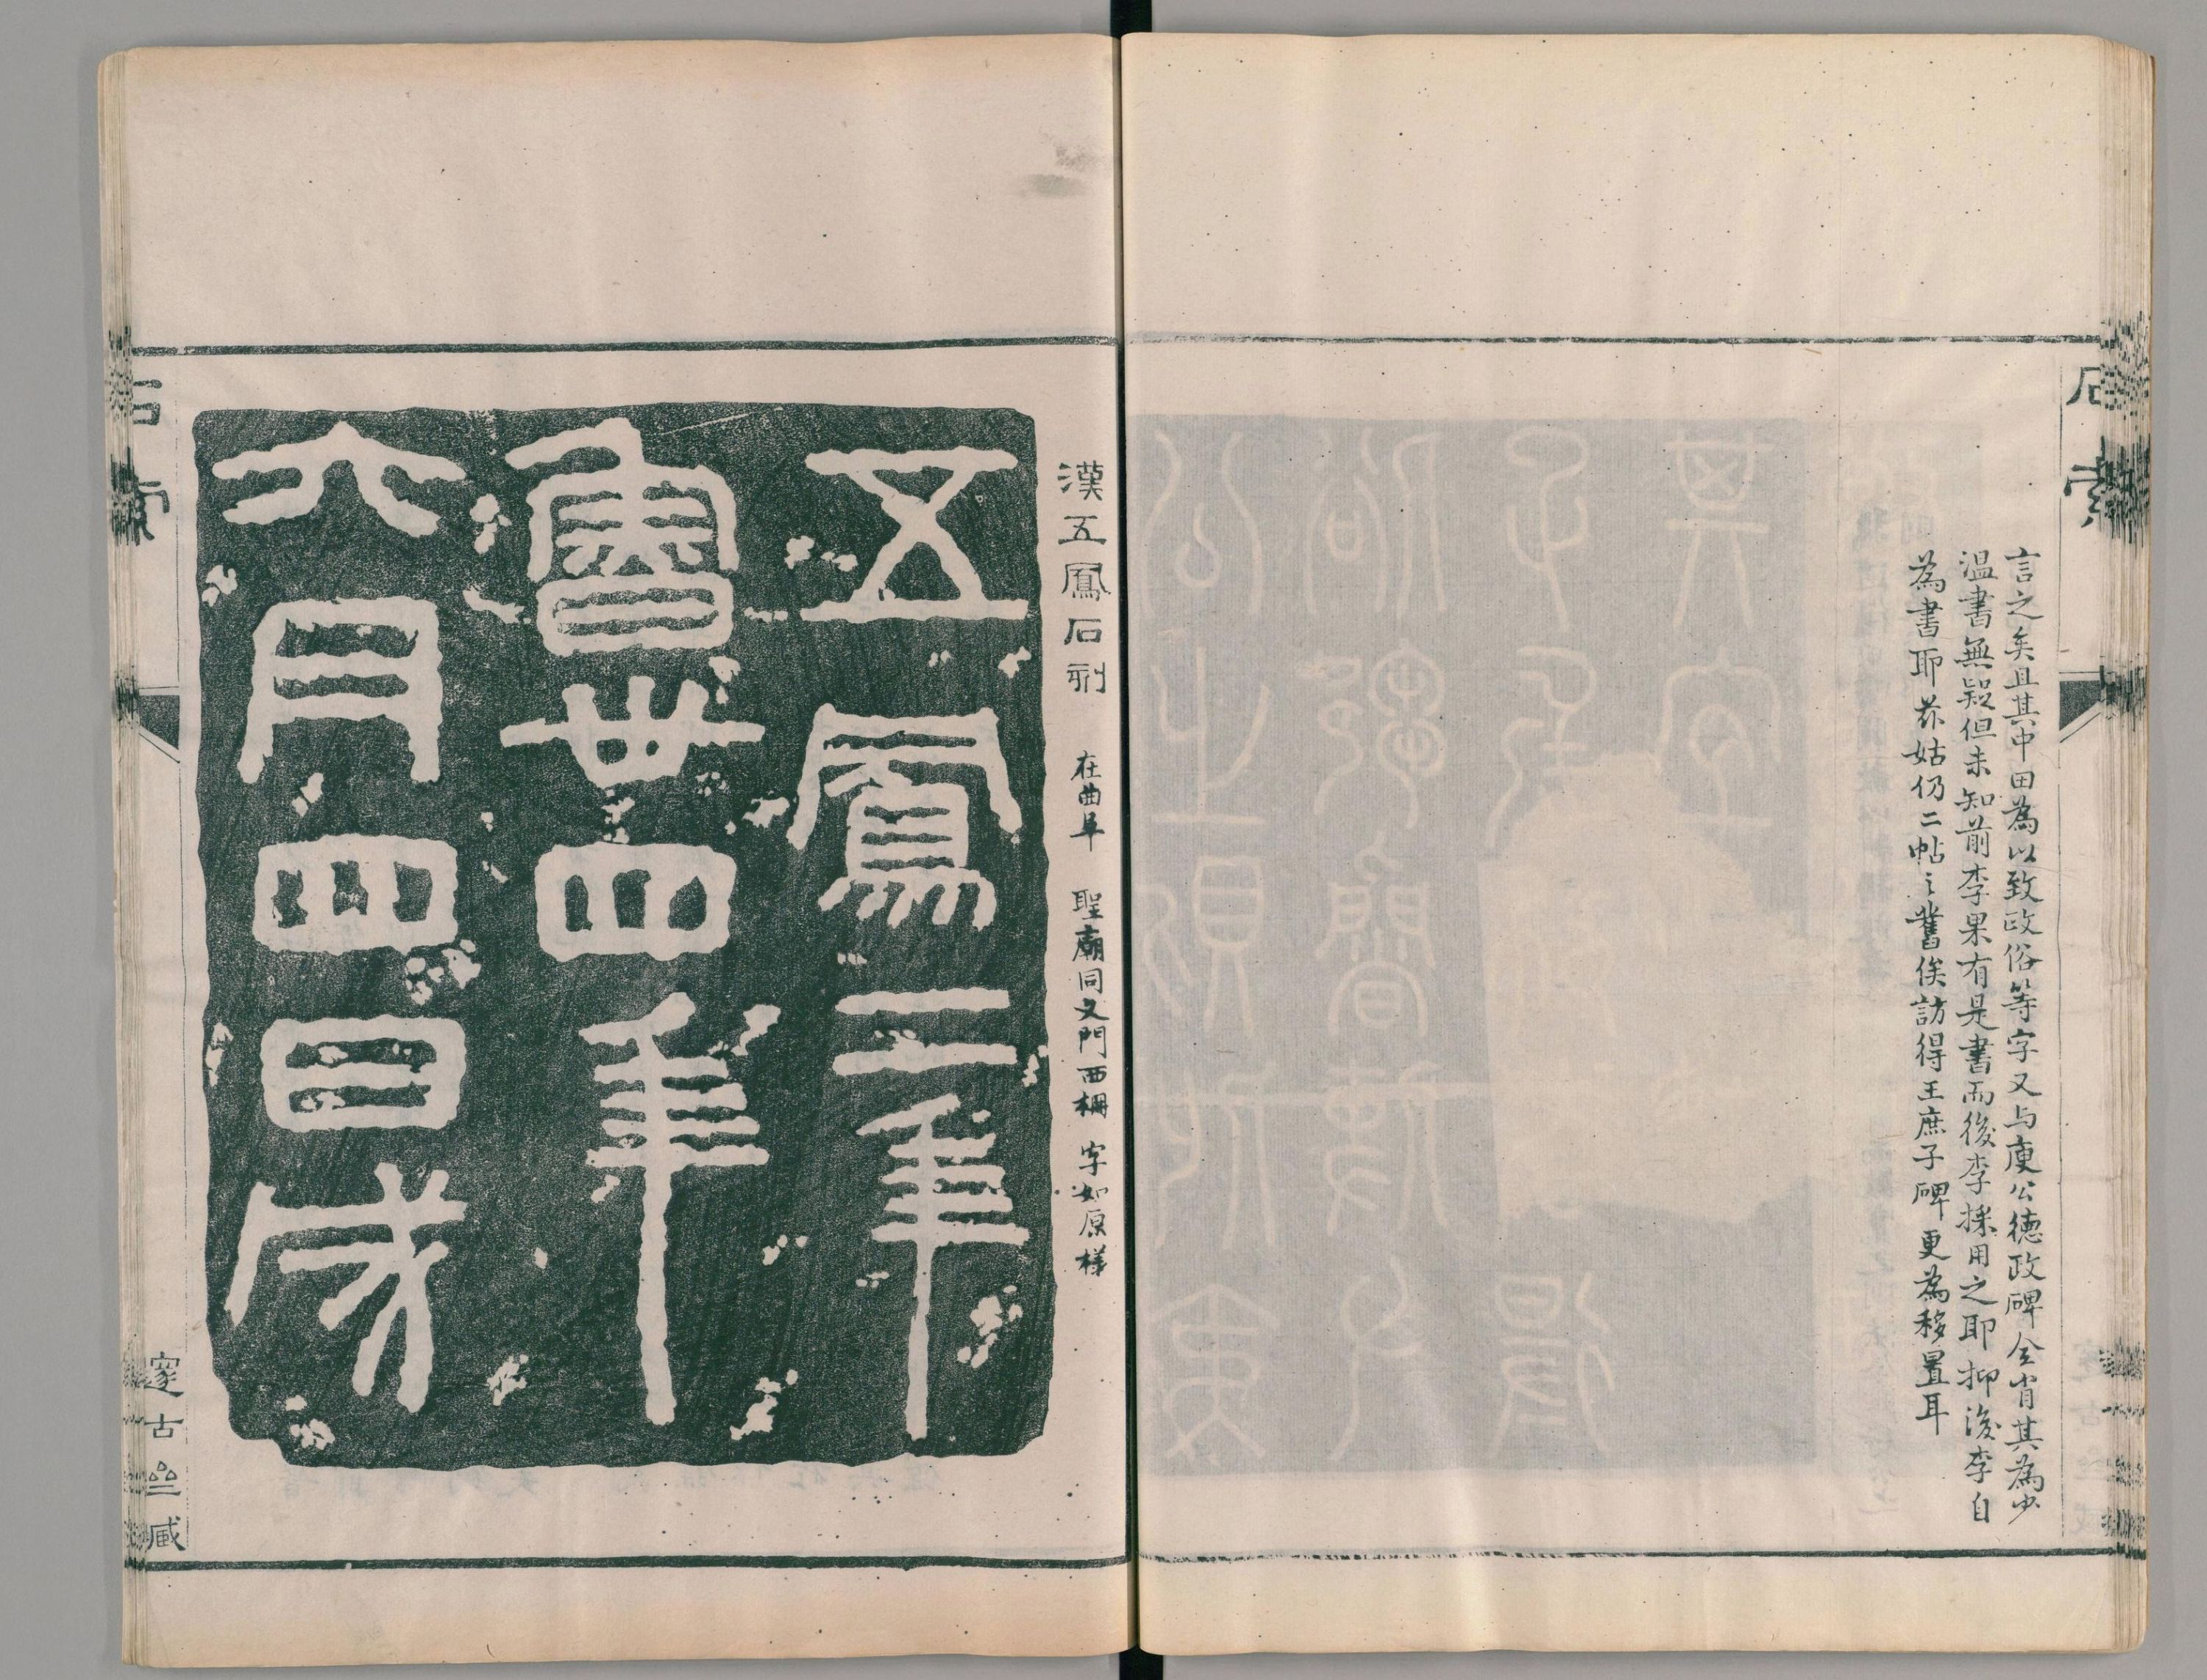 石索
言之矣且其中田為以致政俗等字又与庾公德政碑全肖其為少
温書無疑但未知前李果有是書而後李採用之耶抑後李自
為書耶茲姑仍二帖之舊俟訪得王庶子碑更為移置耳
漢五鳳石刻 在曲阜 聖廟同文門西楹 字如原樣
五鳳二年
魯卅四年
六月四日成
石索
邃古齋藏